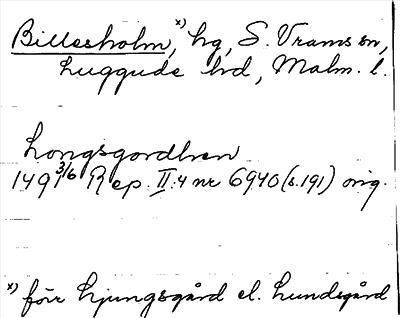 Billesholm, x) hg, S. Vrams sn,
Luggude hd, Malm. l.
Longsgordhen
1491 3/6 Rep. II:4 nr 6940 (s. 191) orig.
x) förr Ljungsgård el. Lundsgård